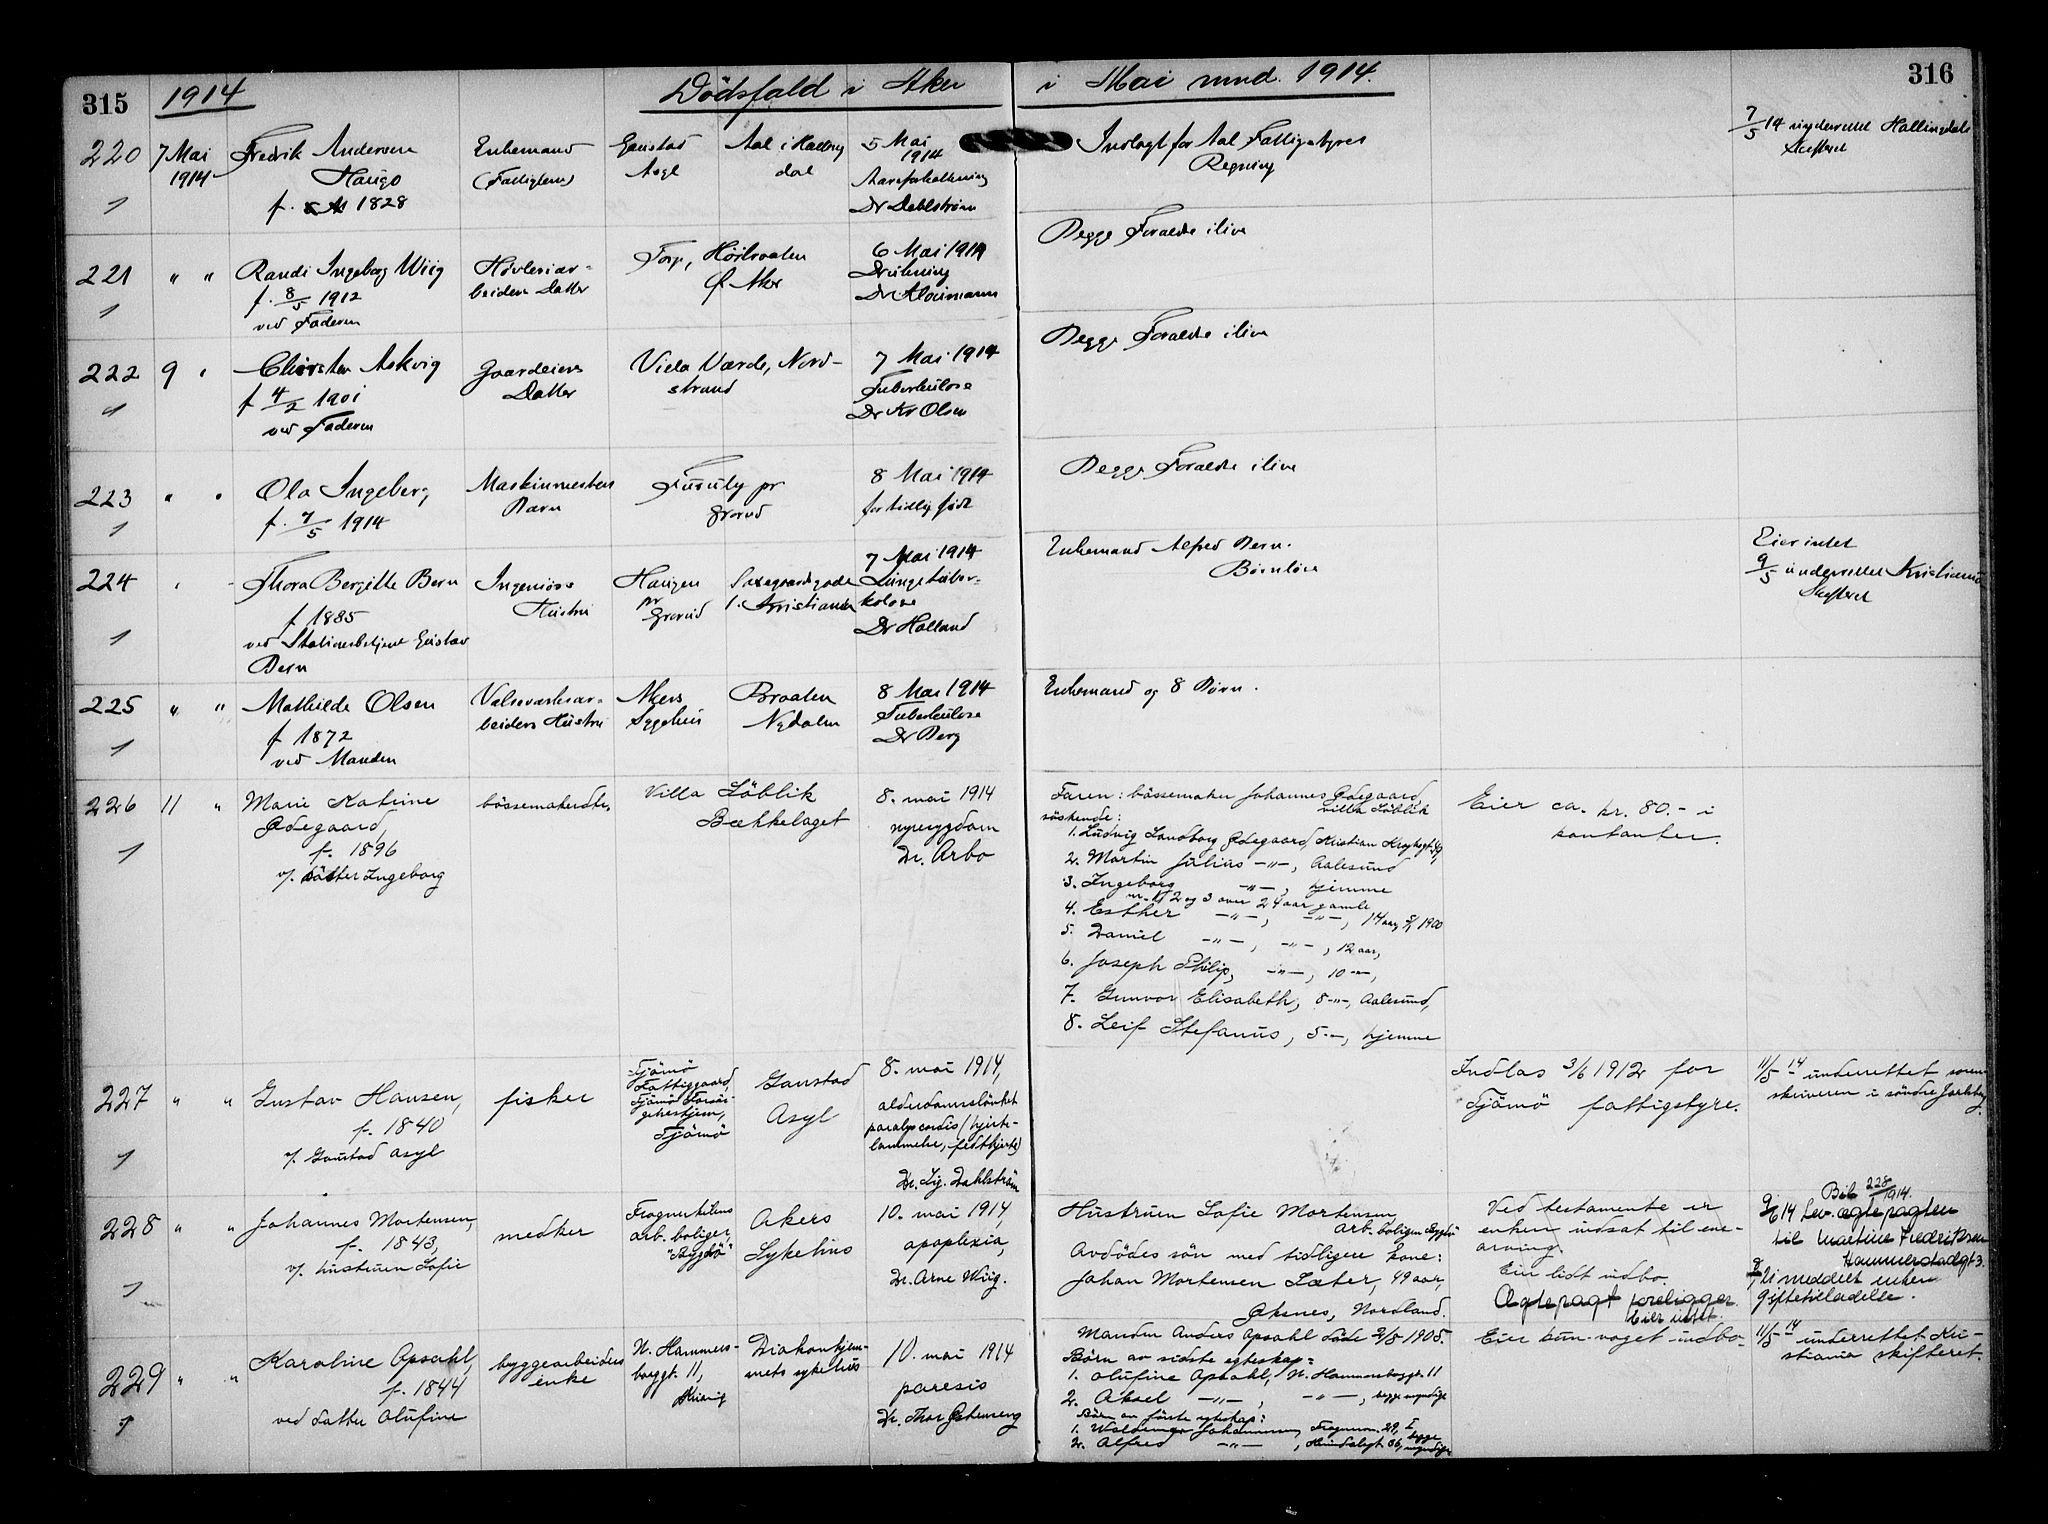 315 1914 Dödsfald i Aker i Mai mnd. 1914. 316
220 7 Mai 1914
Fredrik Andersen
Haugo
f. 1828
1
Enkemand
(Fattiglem)
Gaustad
Asyl
Aal i Halling
dal
5 Mai
1914
Aareforkalkning
Dr Dahlström
Indlagt for Aal Fattigstyres
Regning
7/5 14 underrettet Hallingdals
Skifteret
221 " "
Randi Ingeborg Wiig
f. 8/5 1912
ved Faderen
1
Høvleriar-
beiders Datter
Torp, Høibraaten
Ø Aker
6 Mai 1914
Drukning
Begge Forældre ilive
222 9 "
Askvig
f 4/2 1901
ved Faderen
1
Gaardeiers
Datter
Villa Varde, Nord-
strand
7 Mai 1914
Tuberkulose
Dr Kr Olsen
Begge Forældre ilive
223 " "
Ola Ingeberg
f. 7/5 1914
1
Maskinmesters
Barn
Furuly pr
Grorud
8 Mai 1914
for tidlig født
Begge Forældre ilive
224 " "
Thora Bergitte Bern
f 1885
ved Stationsbetjent Gustav
Bern
1
Ingeniørs
Hustru
Haugen
pr
Grorud
Saxegaardsgade
1. Kristiania
7 Mai 1914
Lungetuber-
kolose
Dr Holland
Enkemand Alfred Bern.
Børnløse
Eier intet
9/5 underrettet Kristiania
Skifteret
225 " "
Mathilde Olsen
f 1872
ved Manden
1
Valseværksar-
beiders Hustru
Akers
Sygehus
Braaten
Nydalen
8 Mai 1914
Tuberkulose
Dr Berg
Enkemand og 8 Børn.
226 11 "
Marie Katrine
Ødegaard,
f. 1896
v/. søster Ingeborg
1
bössemakerdtr.
Villa Löblik
Bækkelaget
8. mai 1914
nyresygdom
Dr. Arbo
Faren: bössemaker Johannes Ødegaard,
villa Löblik
söskende:
1. Ludvig Landborg Ødegaard, Kristian Kroghsgt. 49,
2. Martin Julius -"-, Aalesund
3. Ingeborg -"-, hjemme
nr. 1, 2 og 3 over 24 aar gamle
4. Esther -"-, -"-, 14 aar, 1900
5. Daniel -"-, -"-, 12 aar,
6. Joseph Philip, -"-, 10 -"-,
7. Gunvor Elisabeth, 8 -"-, Aalesund,
8. Leif Stefanus, 5 -"-, hjemme
Eier ca. kr. 80.- i
kontanter.
227 " "
Gustav Hansen,
f. 1840
v/. Gaustad asyl
1
fisker
Tjömö
Fattiggaard,
Tjömö Forsör-
gelseshjem,
Tjömö
Gaustad
Asyl
8. mai 1914,
alderdomsslövhet
paralys cordis (hjerte-
lammelse, fedthjerte)
Dr. Sig. Dahlström
Indlas 3/6 1912 for
Tjömö fattigstyre.
11/5 14 underrettet soren-
skriveren i söndre Jarlsberg
228 " "
Johannes Mortensen,
f. 1843,
v/. hustruen Sofie
1
medker
Frognerkilens
arb. boliger,
"Bygdö"
Akers
Sykehus
10. mai 1914,
apoplexia,
Dr. Arne Wiig.
Hustruen Sofie Mortensen,
arb. boligen Bygdö
Avdödes sön med tidligere kone:
Johan Mortensen Sæter, 49 aar,
Øksnes, Nordland.
Ved testamente er
enken indsat til ene-
arving.
Eier lidt indbo.
Ægtepagt foreligger.
Eier intet.
Bil. 228/1914.
9/6 14 Lev. ægtepagten
til Martine Fredriksen
Hammerstadgt 3.
8/ 21 meddelt enken
giftetilladelse.
229 " "
Karoline Opsahl,
f. 1844
ved datter Olufine
1
byggearbeiders
enke
N. Hammers-
borggt. 11,
Kristiania
Diakonhjem-
mets sykehus
10. mai 1914
paresis
Manden Anders Opsahl döde 2/8 1905.
Börn av sidste egteskap:
1. Olufine Opsahl, N. Hammersborggt. 11
2. Aksel -"-, -"-, begge myndige
Börn av förste egteskap:
1. Waldemar Johannesen, Frognerv. 29, I, begge
2. Alfred -"-, 36, myndige
Eier kun noget indbo.
11/5 14 underrettet Kri-
stiania skifteret.